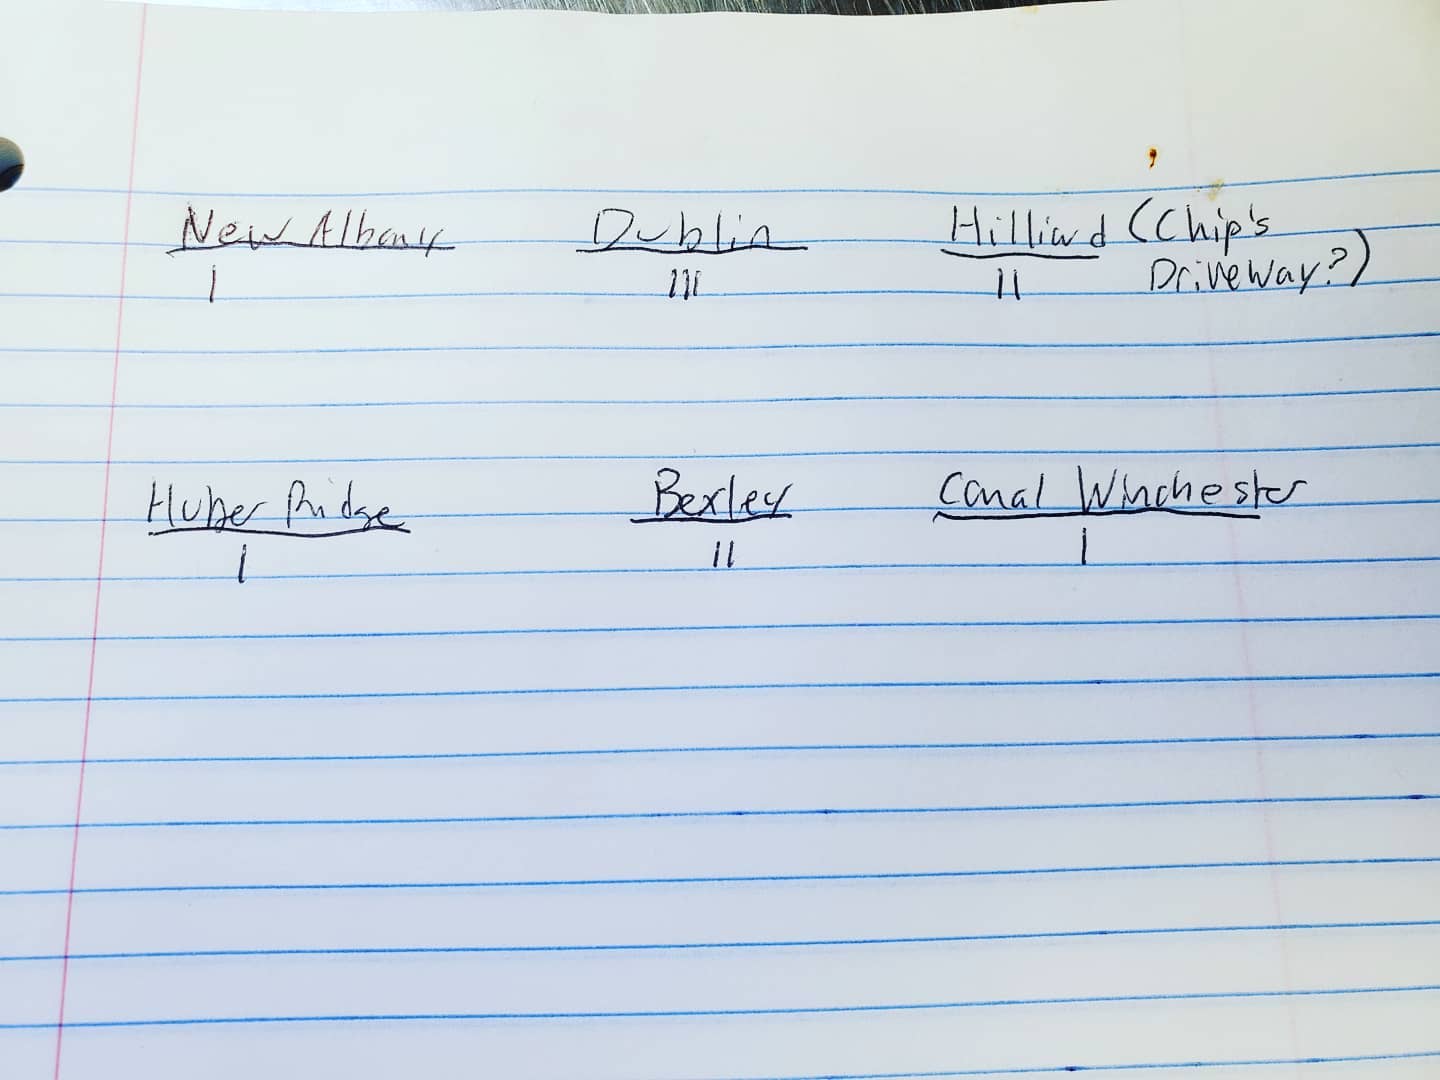 New Albany Dublin Hilliard (Chip's
Driveway?)
I III II
Huber Ridge Bexley Canal Winchester
I II I